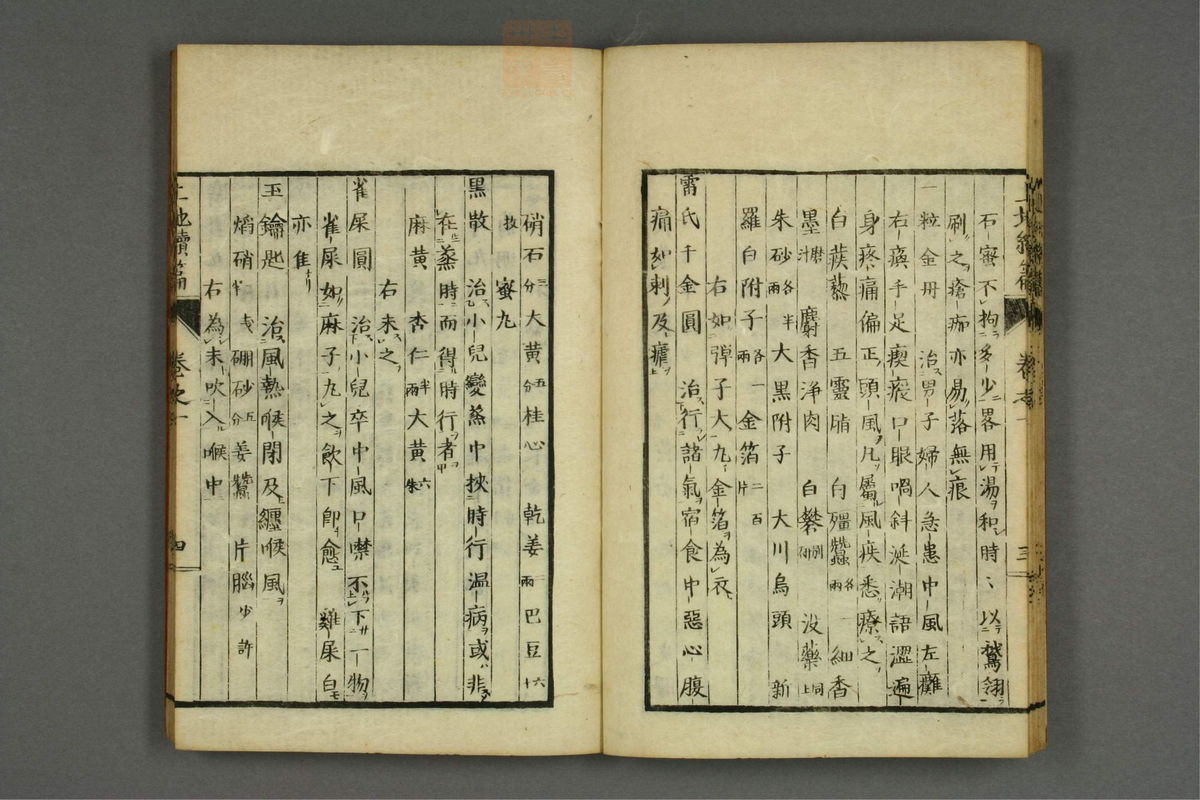 石蜜不拘多少畧用湯和時〻以鵞翎
刷之瘡痂亦易落無痕
一粒金丹　治男子婦人急患中風左癱
右瘓手足瘈瘲口眼喎斜涎潮語澀遍
身疼痛偏正頭風凡屬風疾悉療之
白蒺藜　五靈脂　白殭蠶各一兩　細香
墨磨汁　麝香　浄肉　白礬　没藥同上
朱砂各半兩　大黑附子　大川烏頭　新
羅白附子各一兩　金箔二百片
右如弾子大丸金箔為衣
雷氏千金圓　治行諸氣宿食中惡心腹
痛如刺及瘧
硝石三分　大黄五分　桂心　乾姜二兩　巴豆六十
枚　蜜丸
黒散　治小兒變蒸中挾時行温病或非
在蒸時而得時行者
麻黄　杏仁半兩　大黄六朱
右末之
雀屎圓　治小兒卒中風口噤不下一物
雀屎如麻子丸之飲下即愈　雞屎白
亦隹
玉鑰匙　治風熱喉閉及纏喉風
焰硝　硼砂五分　姜蠶　片腦少許
右為末吹入喉中
卷之一
四
三